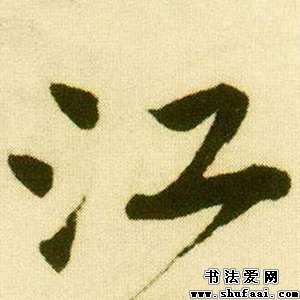 江
书法爱网
www.shufaai.com